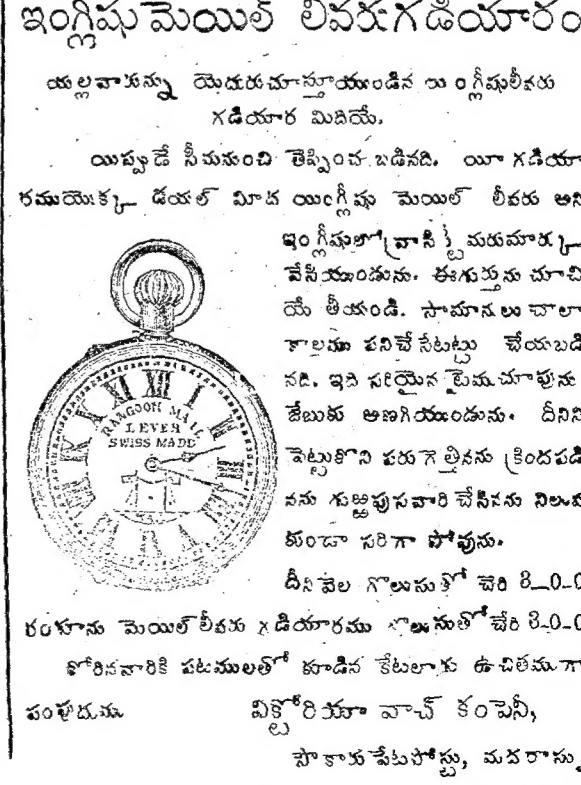 ఇంగ్లీషు మెయిల్ లీవరుగడియారం
యల్లవారున్ను యెదురుచూస్తూయుండిన యింగ్లీషులీవరు
గడియార మిదియే.
యిప్పుడే సీమనుంచి తెప్పించ బడినది. యీ గడియా
రముయొక్క డయల్ మీద యింగ్లీషు మెయిల్ లీవరు అని
ఇంగ్లీషులో వ్రాసి మరుమార్కు
వేసియుండును. ఈగుర్తును చూచి
యే తీయండి. సామానులు చాలా
కాలము పనిచేసేటట్టు చేయబడి
నది. ఇది సరియైన టైముచూపును
జేబుకు అణగియుండును. దీనిని
పెట్టుకొని పరుగెత్తినను క్రిందపడి
నను గుఱ్ఱపుసవారి చేసినను నిలువ
కుండా సరిగా పోవును.
RANGOON MAIL
LEVER
SWISS MADE
దీని వెల గొలుసుతో చేరి 8_0_0
రంగూను మెయిల్ లీవరు గడియారము గొలుసుతోచేరి 8-0-0
కోరినవారికి పటములతో కూడిన కేటలాగు ఉచితముగా
పంపుదుము
విక్టోరియా వాచ్ కంపెనీ,
సౌకారుపేటపోస్టు, మదరాసు